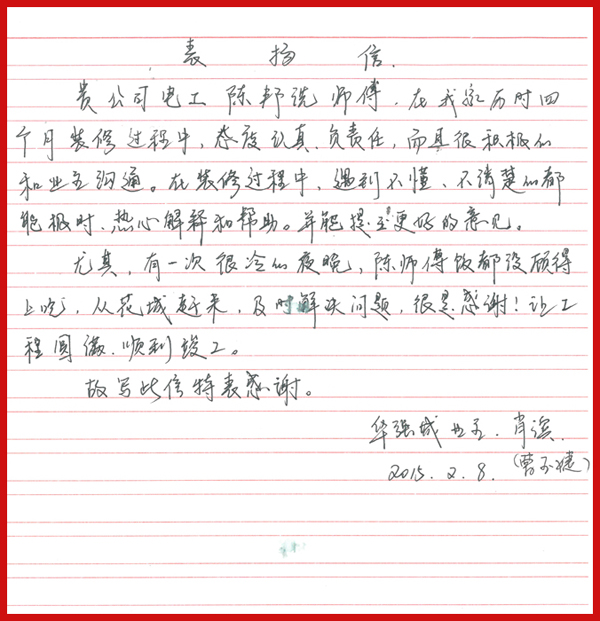 表扬信.
贵公司电工 陈邦说 师傅，在我家历时四
个月装修过程中，态度认真、负责任，而且很积极的
和业主沟通。在装修过程中，遇到不懂、不清楚的都
能极时、热心解释和帮助。并能提出更好的意见。
尤其，有一次很冷的夜晚，陈师傅饭都没顾得
上吃，从花城赶来，及时解决问题，很是感谢！让工
程圆满、顺利竣工。
故写此信特表感谢。
华强城业主. 肖滨.
2015.2.8.